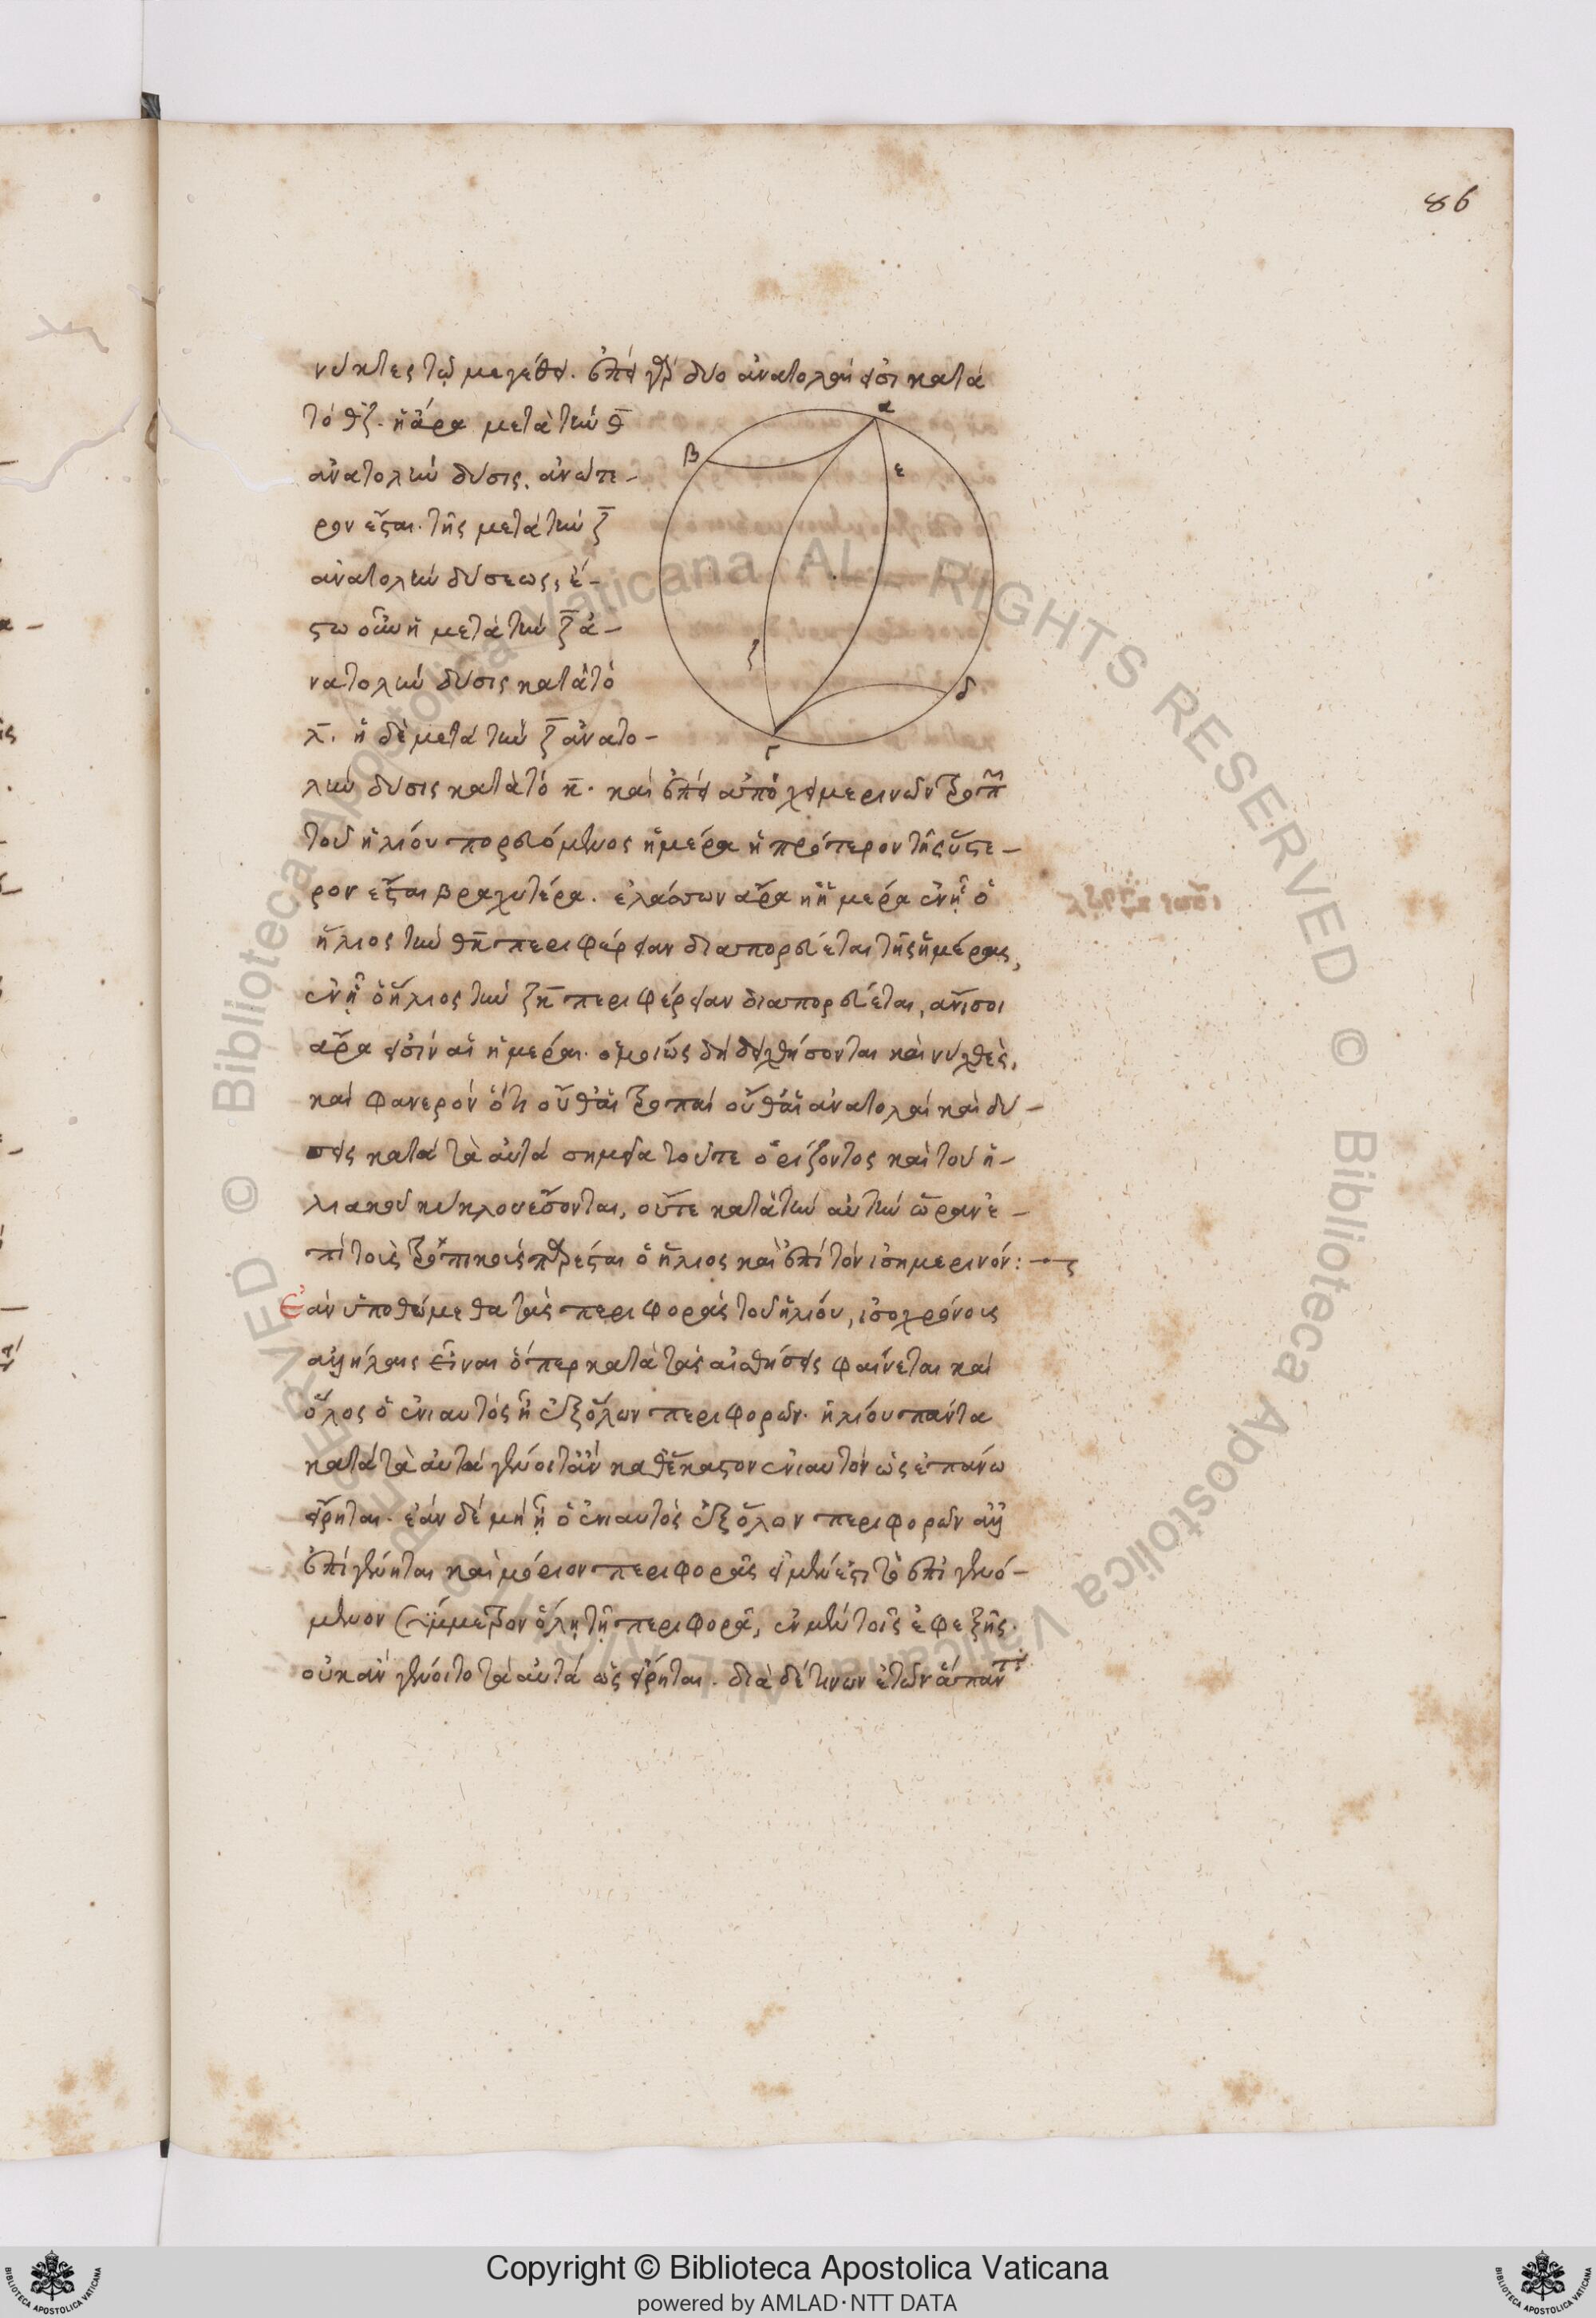 86
νύκτες τῷ μεγέθει. ἐπεὶ γὰρ δύο ἀνατολαί εἰσι κατὰ
τὸ θζ. ἡ ἄρα μετὰ τὴν θ
ἀνατολὴν δύσις. ἀνώτε-
ρον ἔσται. τῆς μετὰ τὴν ζ
ἀνατολὴν δύσεως, ἔ-
στω οὖν ἡ μετὰ τὴν ζ ἀ-
νατολὴν δύσις κατὰ τὸ
λ. ἡ δὲ μετὰ τὴν ζ ἀνατο-
λὴν δύσις κατὰ τὸ κ. καὶ ἐπεὶ ἀπὸ χειμερινῶν τροπῶν
τοῦ ἡλίου πορευόμενος ἡμέρα ἡ πρότερον τῆς ὕστε-
ρον ἔσται βραχυτέρα. ἐλάσσων ἄρα ἡ ἡμέρα ἐν ᾗ ὁ
ἥλιος τὴν θκ περιφέρειαν διαπορεύεται τῆς ἡμέρας,
ἐν ᾗ ὁ ἥλιος τὴν ζκ περιφέρειαν διαπορεύεται, ἄνισοι
ἄρα εἰσὶν αἱ ἡμέραι. ὁμοίως δὴ δειχθήσονται καὶ νύχθες,
καὶ φανερὸν ὅτι οὔθ' αἱ τροπαὶ οὔθ' αἱ ἀνατολαὶ καὶ δύ-
σεις κατὰ τὰ αὐτὰ σημεῖα τοῦ τε ὁρίζοντος καὶ τοῦ ἡ-
λιακοῦ κύκλου ἔσονται, οὔτε κατὰ τὴν αὐτὴν ὥραν ἐ-
πὶ τοῖς τροπικοῖς παρέσται ὁ ἥλιος καὶ ἐπὶ τὸν ἰσημερινόν:
Ἐὰν ὑποθώμεθα τὰς περιφορὰς τοῦ ἡλίου, ἰσοχρόνους
ἀλλήλαις εἶναι ὅπερ κατὰ τὰς αἰσθήσεις φαίνεται καὶ
ὅλος ὁ ἐνιαυτὸς ᾖ ἐξ ὅλων περιφορῶν. ἡλίου πάντα
κατὰ τὰ αὐτὰ γένοιτ' ἂν καθ' ἕκαστον ἐνιαυτὸν ὡς ἐπάνω
εἴρηται. ἐὰν δὲ μὴ ᾖ ὁ ἐνιαυτὸς ἐξ ὅλων περιφορῶν ἀλλ'
ἐπιγένηται καὶ μόριον περιφορᾶς εἰ μέν ἐστι τὸ ἐπιγενό-
μενον σύμμετρον ὅλῃ τῇ περιφορᾷ, ἐν μὲν τοῖς ἐφεξῆς.
οὐκ ἂν γένοιτο τὰ αὐτὰ ὡς εἴρηται. διὰ δέ τινων ἐτῶν ἅπαντα
α
β
ε
ζ
δ
γ